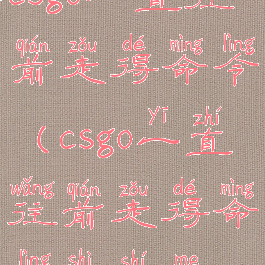 qián zǒu dé mìng lìng
前走得命令
yī zhí
(csgo一直
wǎng qián zǒu dé mìng
往前走得命
lìng shì shí me